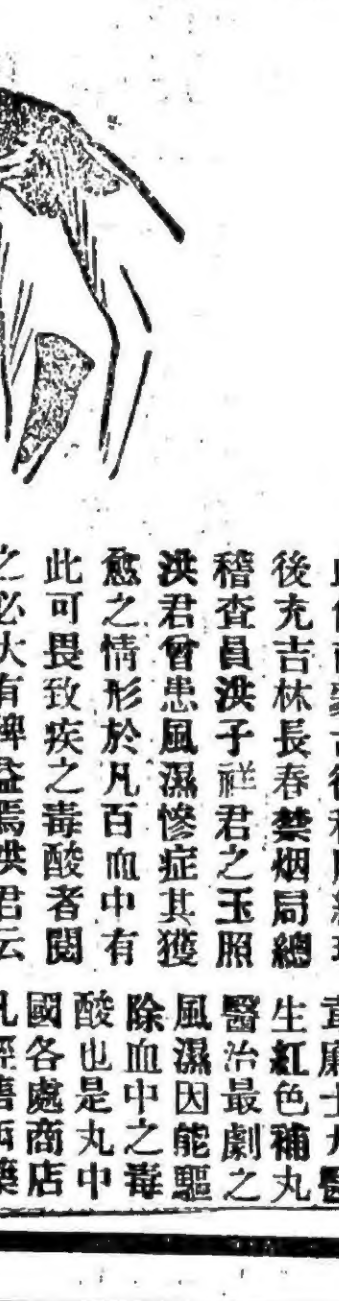 後充吉林長春禁烟局總
稽查員洪子祥君之玉照
洪君曾患風濕慘症其獲
愈之情形於凡百血中有
此可畏致疾之毒酸者閱
之必大有裨益焉洪君云
廉士大醫
生紅色補丸
醫治最劇之
風濕因能驅
除血中之毒
酸也是丸中
國各處商店
凡經售西藥